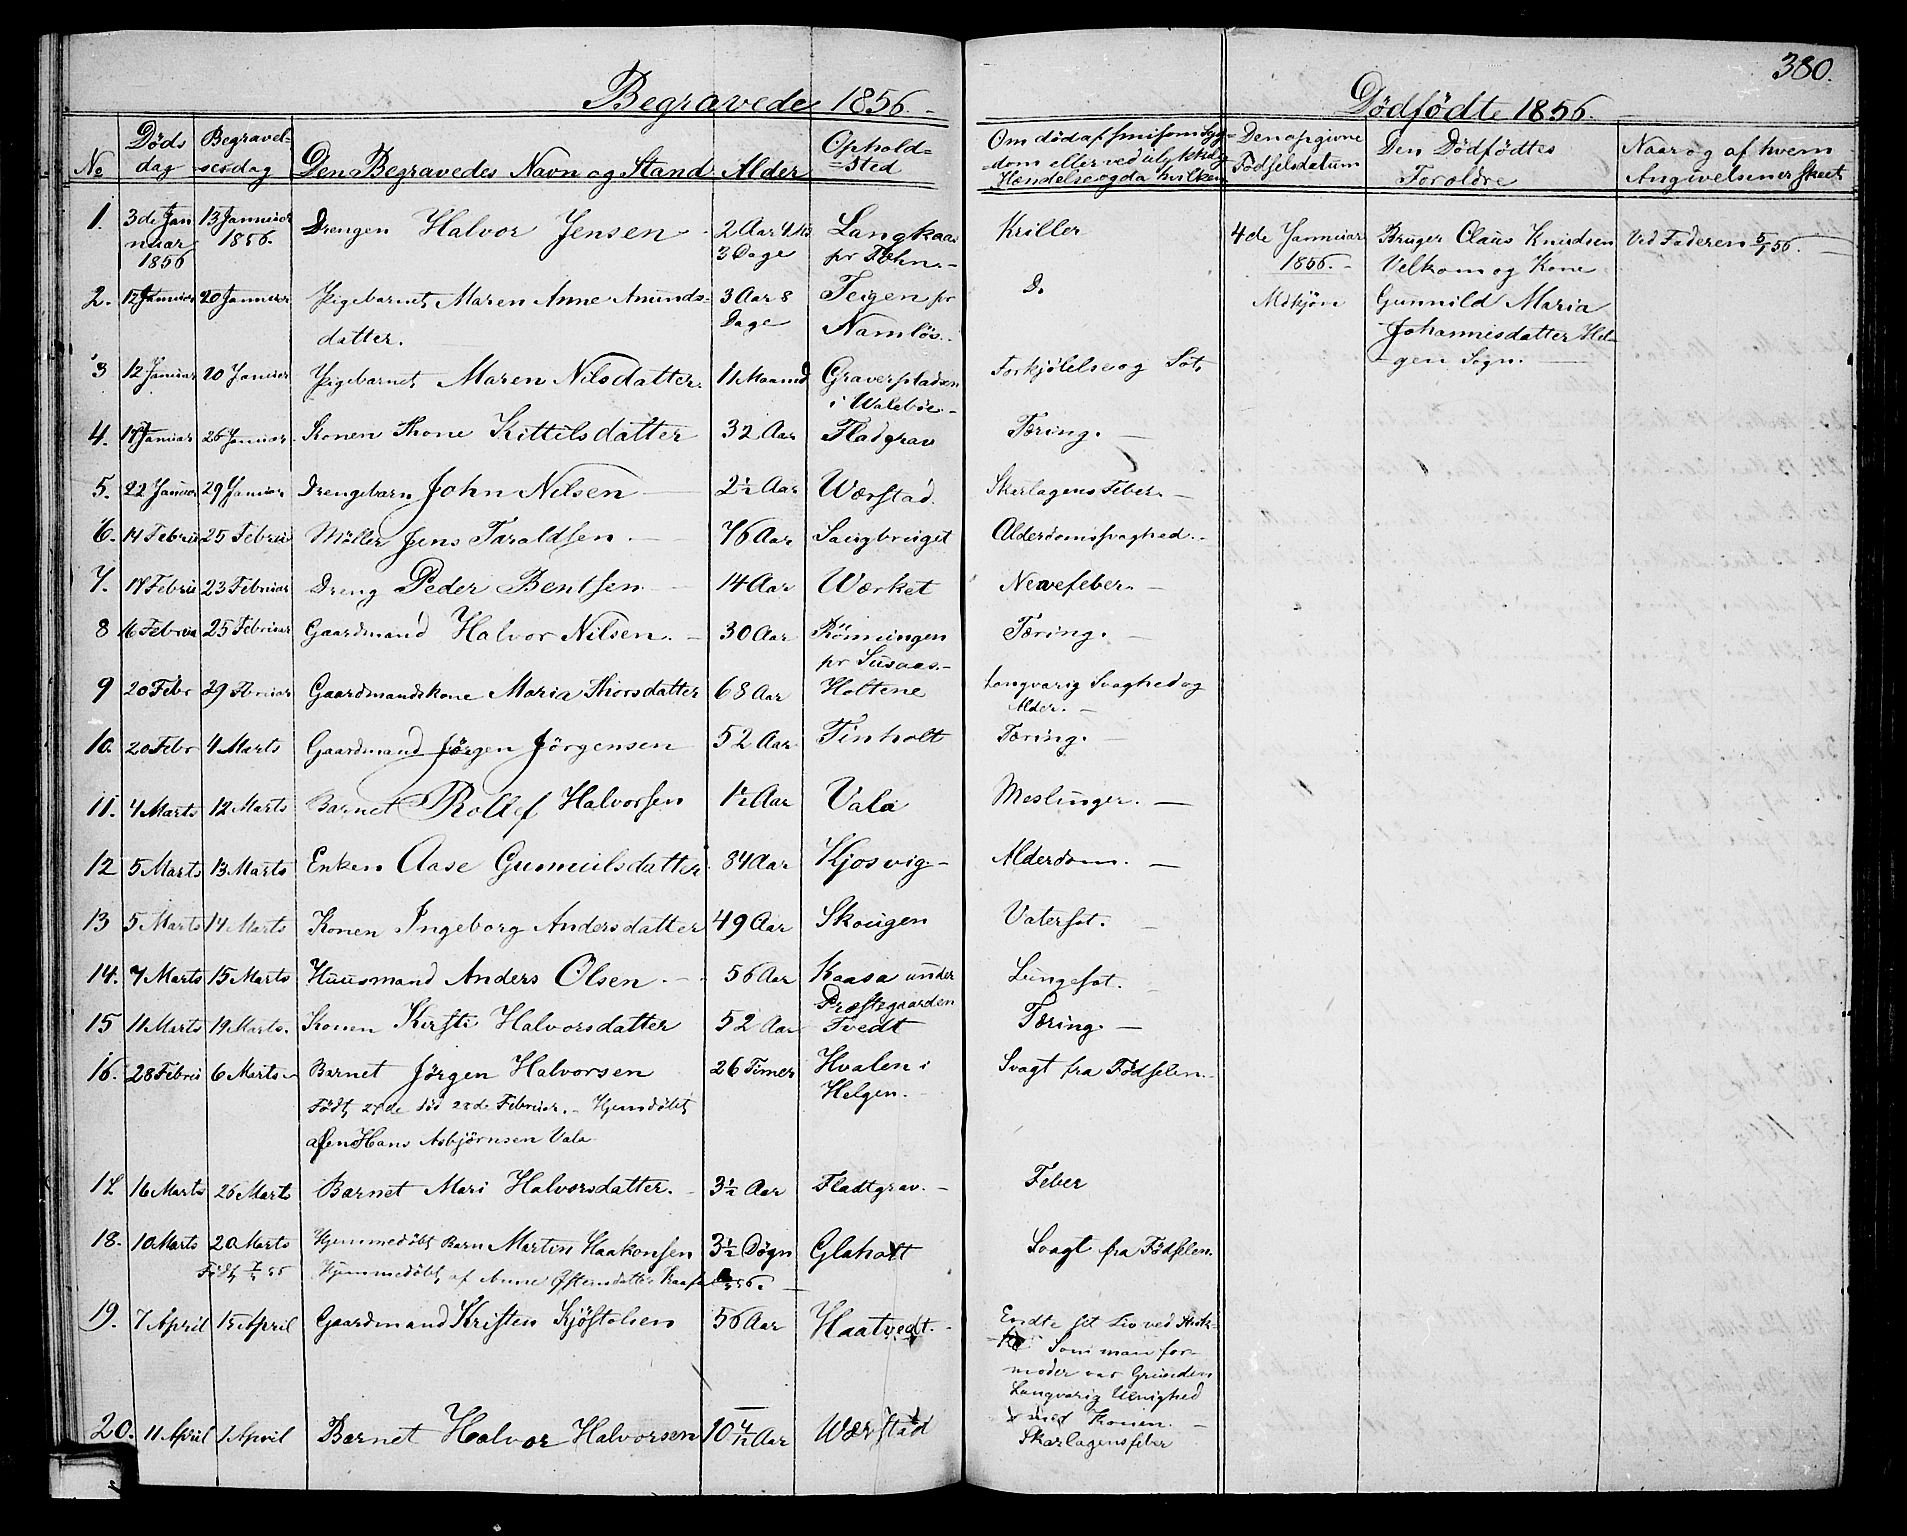 380.
Begravede 1856.
No
Døds dag
Begravelsesdag
Den Begravedes Navn og Stand
Alder
Ophold=sted
Om död af smisom Syg-
dom eller ved ulykkelig
Hændelse og da hvilken
1. 3de Januar 1856 13 Januar 1856. Drengen Halvor Jensen 2 Aar 3 Dage Langkaas pr Kriller
2. 12 Januar 20 Januar Pigebarnet Maren Anne Amunds-
datter. 3 Aar 8 Dage Teigen pr Namlös. Do
3 12 Januar 20 Januar Pigebarnet Maren Nilsdatter. 11 Maaned Graverpladsen i Waleböe Forkjölelse og Sot
4. 17 Januar 26 Januar Konen Thone Kittilsdatter 32 Aar Fladgrav Tæring.
5. 22 Januar 29 Januar Drengebarn John Nilsen 2½ Aar Wærstad. Skarlagens Feber.
6. 14 Februar 25 Februar Møller Jens Taraldsen 76 Aar Saugbruget Alderdomssvaghed.
7. 17 Februar 23 Februar Dreng Peder Bentsen 14 Aar Wærket Nervefeber.
8 16 Februar 25 Februar Gaardmand Halvor Nilsen. 30 Aar Rönningen pr Susaas. Tæring.
9 20 Febr 29 Februar Gaardmandskone Maria Thorsdatter 68 Aar Holtene Langvarig Svaghed og
Alder.
10. 20 Febr 4 Marts Gaardmand Jörgen Jörgensen 52 Aar Tinholt Tæring.
11. 4 Marts 12 Marts Barnet Rollef Halvorsen 1½ Aar Vala Meslinger.
12 5 Marts 13 Marts Enken Aase Gunnulsdatter 84 Aar Kjosvig Alderdom.
13 5 Marts 14 Marts Konen Ingeborg Andersdatter 49 Aar Skougen Vatersot.
14. 7 Marts 15 Marts Huusmand Anders Olsen. 56 Aar Kaasa under Præstegaarden Lungesot.
15 11 Marts 19 Marts. Konen Kirsti Halvorsdatter 52 Aar Tvedt Tæring.
16. 28 Februar 6 Marts Barnet Jörgen Halvorsen 26 Timer Hvalen i Helgen. Svagt fra Födselen.
Födt 27de död 28de Februar. Hjemdöbt
af en Hans Asbjörnsen Vala
17 16 Marts 26 Marts Barnet Mari Halvorsdatter. 3½ Aar Fladtgrav. Feber
18. 10 Marts 20 Marts Hjemmedöbt Barn Martin Haakonsen 3½ Døgn Glaholt Svagt fra Födselen.
Hjemmedöbt af Anne Kaasa
19. 7 April 15 April Gaardmand Kristen Kjöstolsen 56 Aar Haatvedt. Endte sit Liv ved
Som man for-
moder var Grunden
Langvarig Uenighed
med Konen.
20. 11 April 1 April Barnet Halvor Halvorsen 10 Aar Wærstad Skarlagensfeber
Dödfödte 1856.
Den opgivne Födselsdatum
Den Dödfödtes Foroldre
Naar og af hvem Angivelsener skeet
4de Januar 1856. Bruger Claus Knudsen Ved Faderen 5/1 56.
Velkom og Kone
Mdkjön Gunnild Maria
Johannisdatter Hel-
gen Sogn.